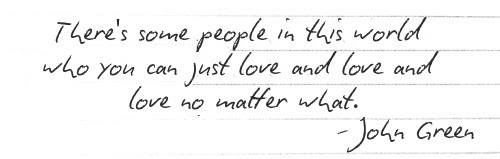 There's some people in this world
who you can just love and love and
love no matter what.
-John Green